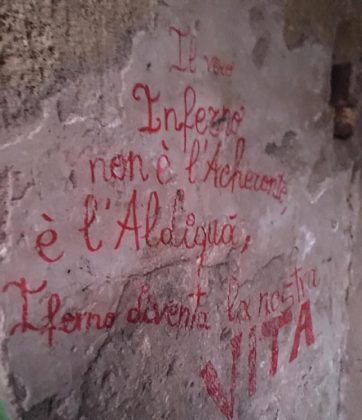 Il vero
Inferno
non è l'Acheronte,
è l'Aldiquá,
Iferno diventa la nostra
VITA